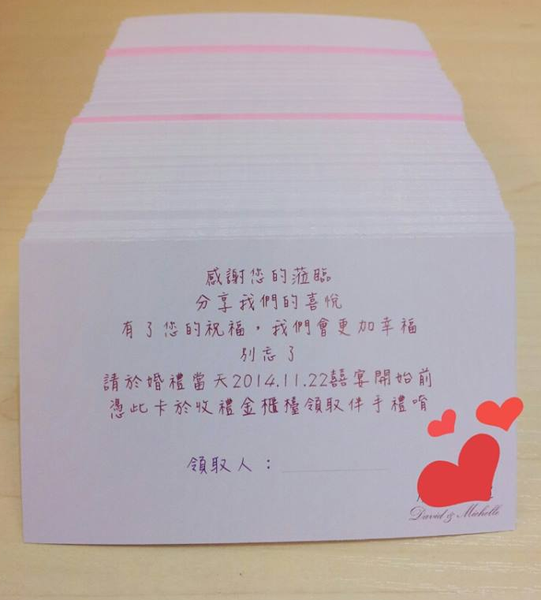 感謝您的蒞臨
分享我們的喜悅
有了您的祝福，我們會更加幸福
別忘了
請於婚禮當天2014.11.22囍宴開始前
憑此卡於收禮金櫃檯領取伴手禮唷
領取人：
David & Michelle